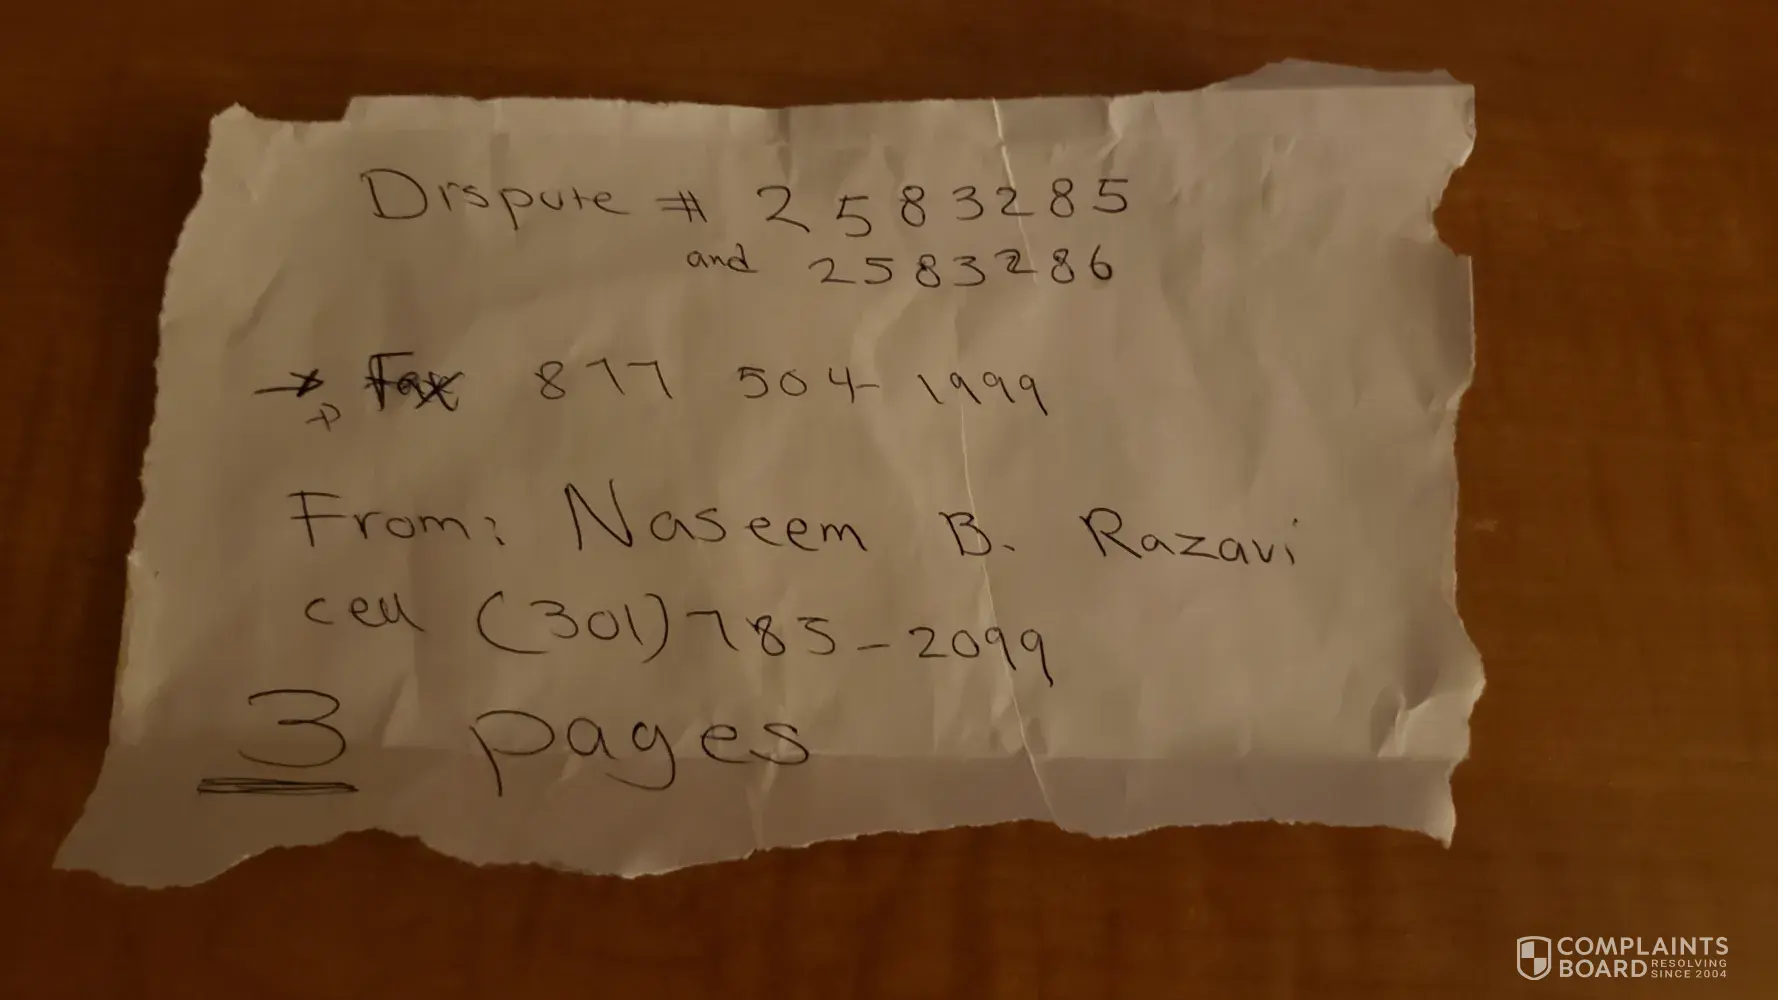 Dispute # 2583285
and 2583286
→ Fax 877 504-1999
From: Naseem B. Razavi
cell (301) 785-2099
3 pages
COMPLAINTS
BOARD RESOLVING
SINCE 2004